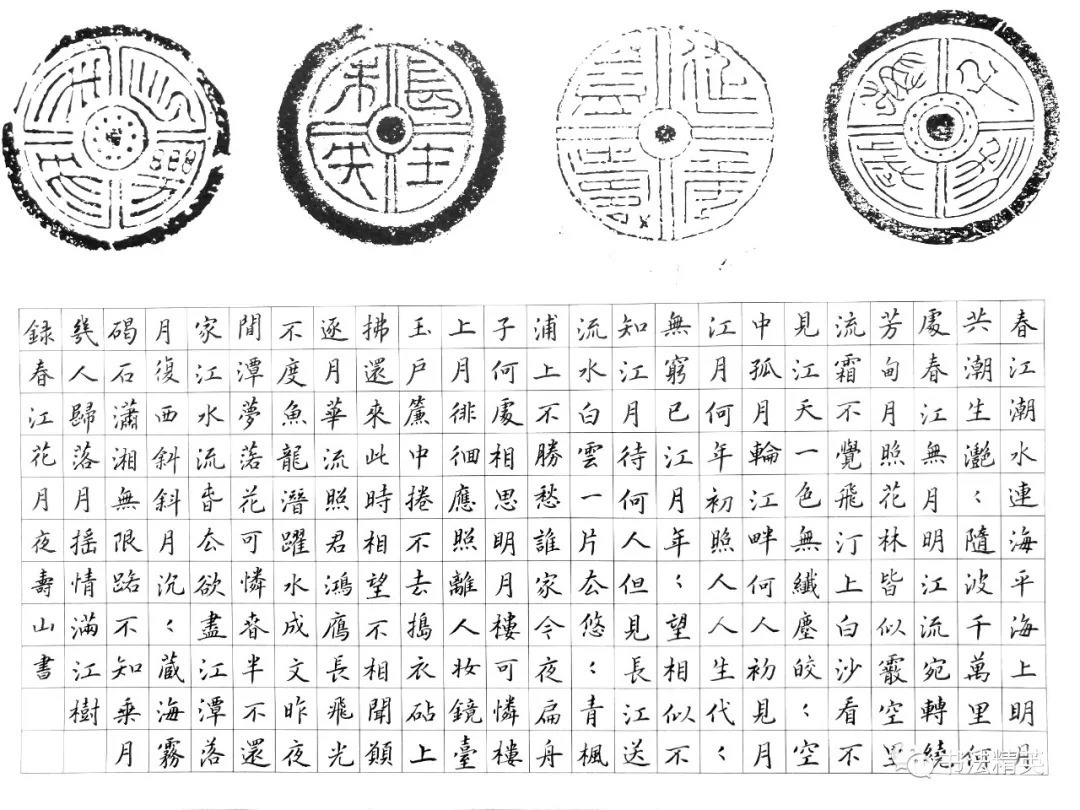 長生未央
春江潮水連海平海上明月
共潮生灔〻隨波千萬里何
處春江無月明江流宛轉繞
芳甸月照花林皆似霰空里
流霜不覺飛汀上白沙看不
見江天一色無纖塵皎〻空
中孤月輪江畔何人初見月
江月何年初照人人生代〻
無窮已江月年〻望相似不
知江月待何人但見長江送
流水白雲一片去悠〻青楓
浦上不勝愁誰家今夜扁舟
子何處相思明月樓可憐樓
上月徘徊應照離人妝鏡臺
玉戶簾中捲不去搗衣砧上
拂還來此時相望不相聞願
逐月華流照君鴻雁長飛光
不度魚龍潛躍水成文昨夜
閒潭夢落花可憐春半不還
家江水流春去欲盡江潭落
月復西斜斜月沉〻藏海霧
碣石瀟湘無限路不知乘月
幾人歸落月搖情滿江樹
録春江花月夜壽山書
书法精英